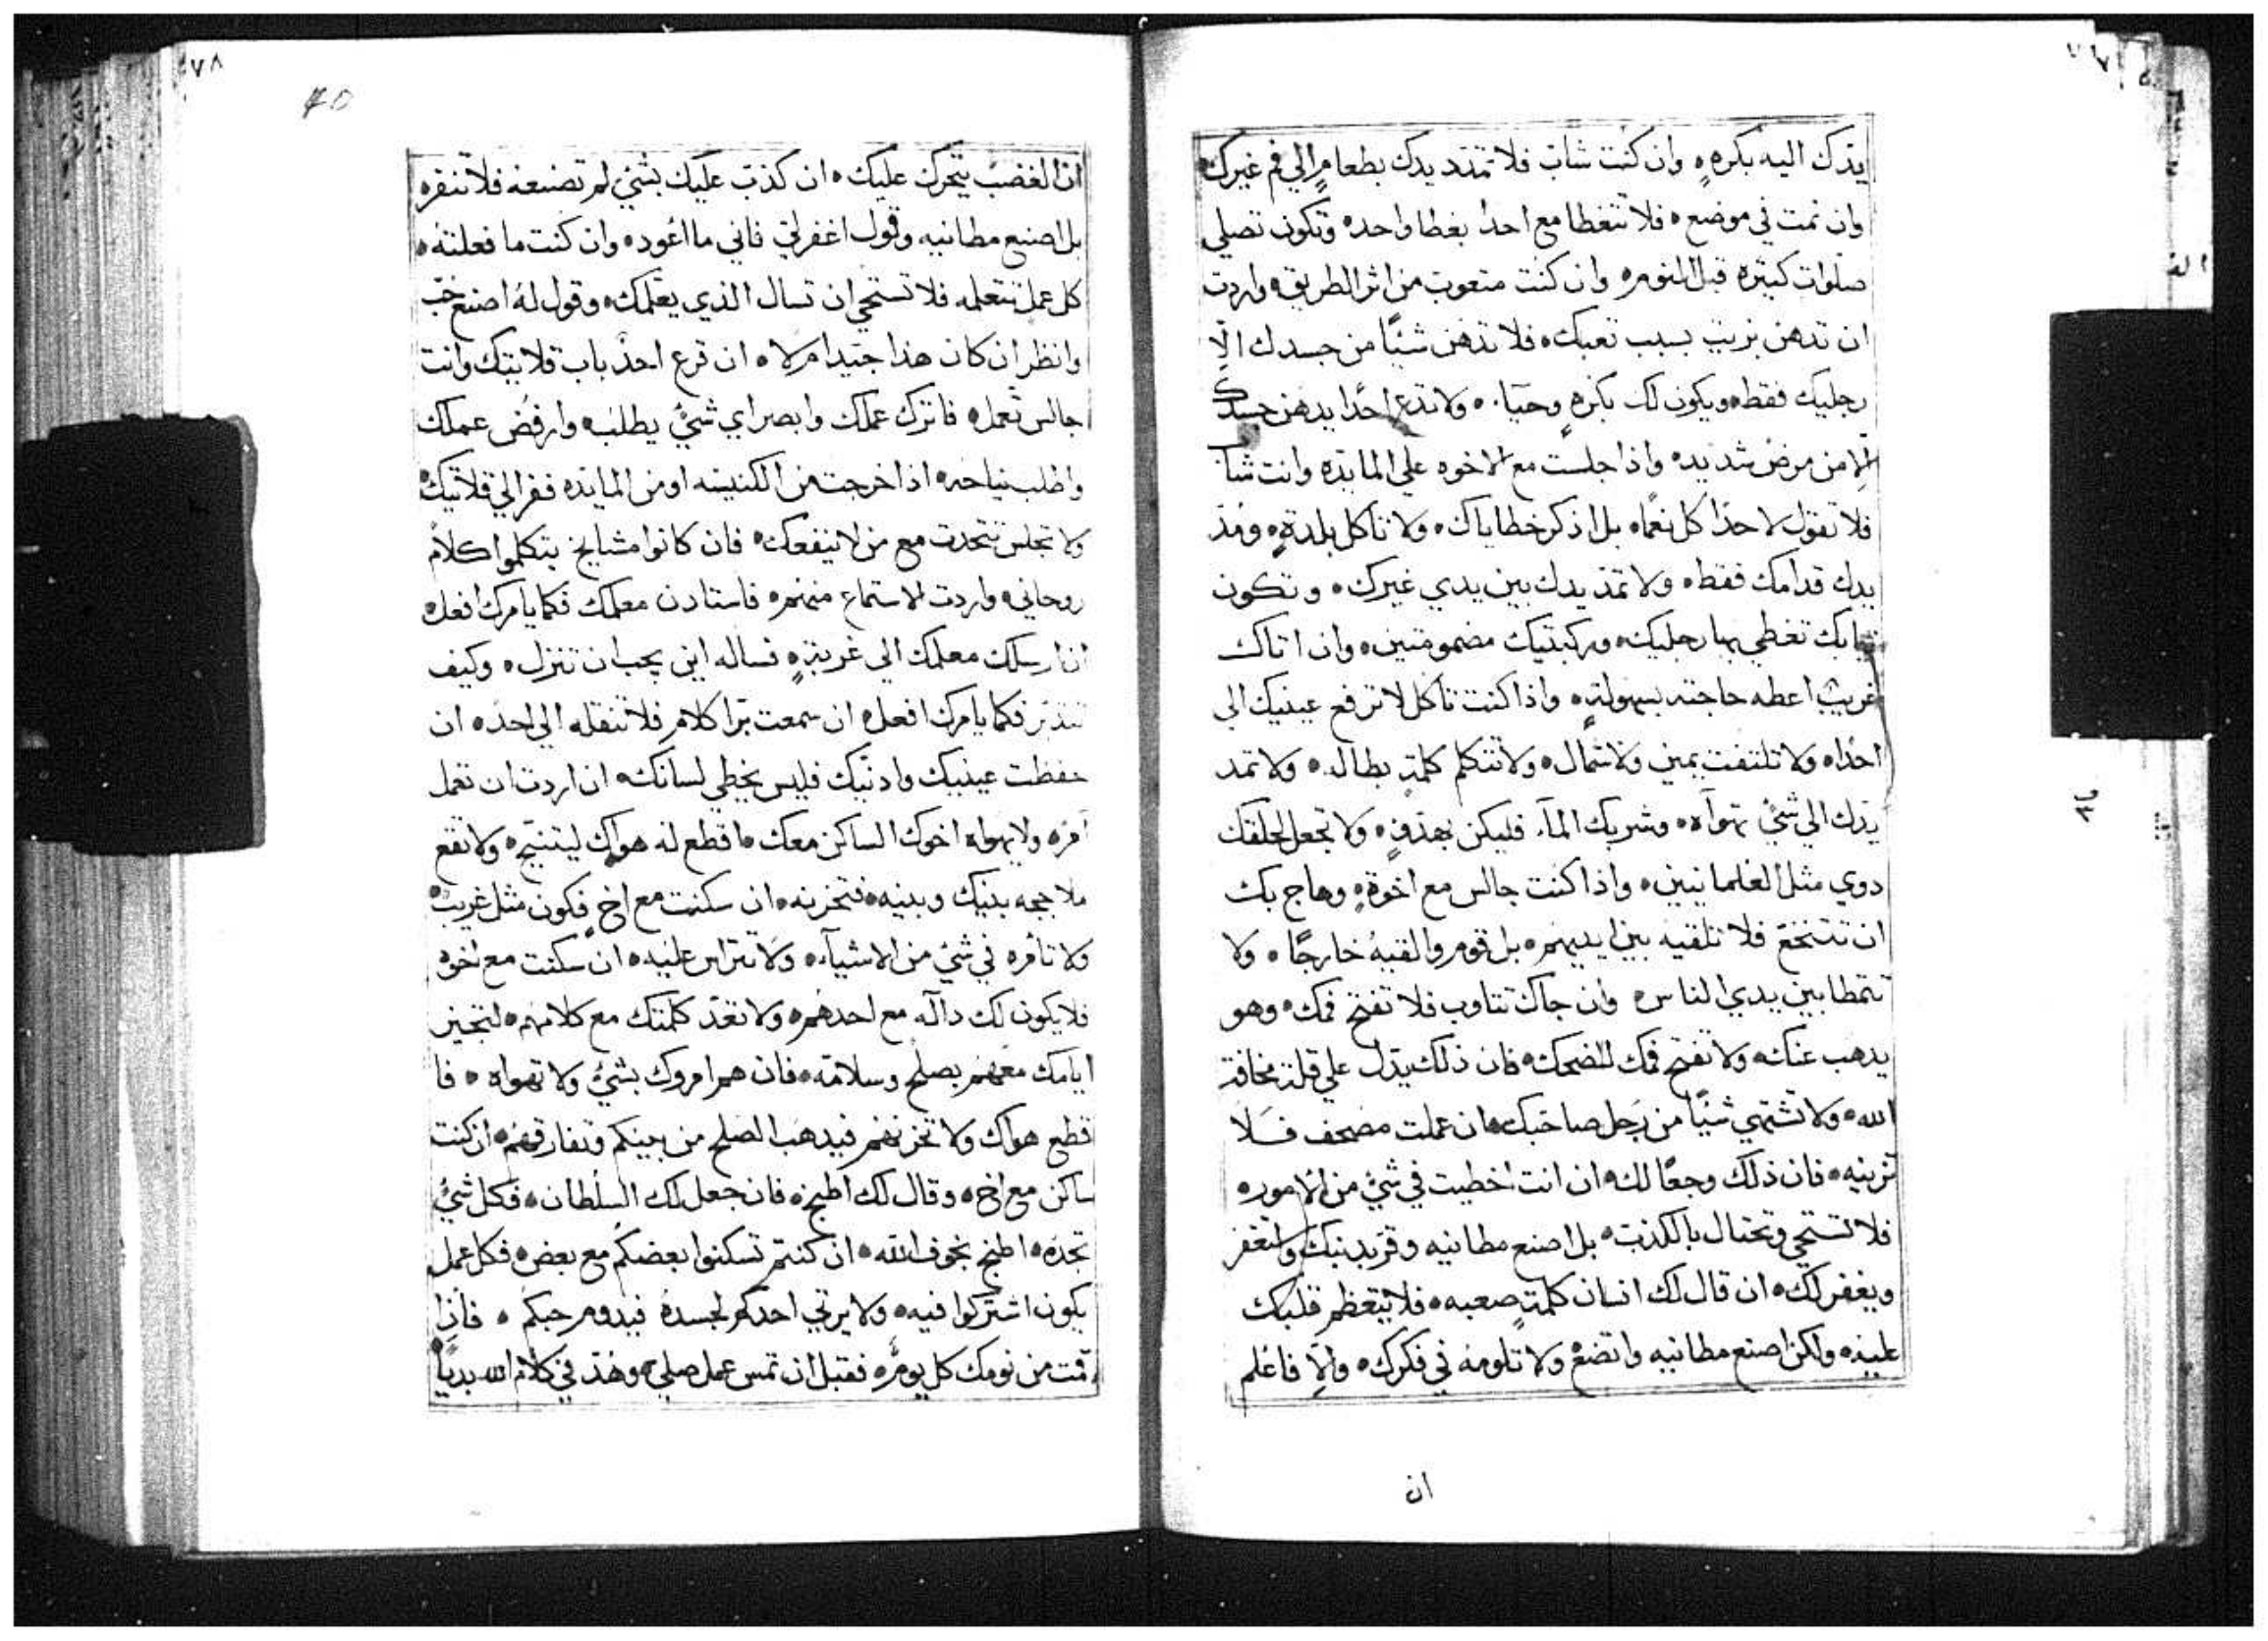 يدك اليه بكرهٍ ۰ وان كنت شاب فلا تمتد يدك بطعامٍ الي فم غيرك
وان نمت في موضع ۰ فلا تتغطا مع احد بغطا واحد ۰ وتكون تصلي
صلوات كثيره قبل النوم ۰ وان كنت متعوب من اثر الطريق ۰ واردت
ان تدهن بزيت بسبب تعبك ۰ فلا تدهن شيًا من جسدك الّا
رجليك فقط ۰ ويكون لك بكرهٍ وحيآ ۰ ولا تدع احدًا يدهن جسدك
الا من مرض شديد ۰ واذا جلست مع الاخوه علي المايده وانت شاب
فلا تقول لاحدًا كل نعمًا ۰ بل اذكر خطاياك ۰ ولا تاكل بلدةٍ ۰ ومد
يدك قدامك فقط ۰ ولا تمد يدك بين يدي غيرك ۰ وتكون
ثيابك تغطي بها رجليك ۰ وركبتيك مضمومتين ۰ وان اتاك
غريب اعطه حاجته بسهولةٍ ۰ واذا كنت تاكل لا ترفع عينيك الي
احدًا ۰ ولا تلتفت يمين ولا شمال ۰ ولا تتكلم كلمة بطاله ۰ ولا تمد
يدك الي شيٍ تهوآه ۰ وشربك المآء فليكن بهدوٍ ۰ ولا تجعل لحلقك
دوي مثل العلمانيين ۰ واذا كنت جالس مع اخوةٍ ۰ وهاج بك
ان تتنخع فلا تلقيه بين ايديهم ۰ بل قوم والقيه خارجًا ۰ ولا
تتمطا بين يدي الناس ۰ وان جاك تتاوب فلا تفتح فمك ۰ وهو
يدهب عنك ۰ ولا تفتح فمك للضحك ۰ فان ذلك يدل علي قلة مخافة
الله ۰ ولا تشتهي شيًا من رحل صاحبك ۰ ان عملت مصحف فلا
تزينه ۰ فان ذلك وجعًا لك ۰ ان انت اخطيت في شيٍ من الامور ۰
فلا تستحي وتحتال بالكدب ۰ بل اصنع مطانيه وقر بدنبك واستغفر
ويغفر لك ۰ ان قال لك انسان كلمةٍ صعبه ۰ فلا يتعظم قلبك
عليه ۰ ولكن اصنع مطانيه واتضع ولا تلومه في فكرك ۰ والّا فاعلم
ان
٧٨
40
ان الغضب يتحرك عليك ۰ ان كذب عليك بشيٍ لم تصنعه فلا تنفره
بل اصنع مطانيه وقول اغفر لي فاني ما اعود ۰ وان كنت ما فعلته ۰
كل عمل تتعلمه فلا تستحي ان تسال الذي يعلمك ۰ وقول له اصنع حب
وانظر ان كان هذا جيدا ام لا ۰ ان قرع احدً باب قلايتك وانت
جالس تعمل ۰ فاترك عملك وابصر اي شيٍ يطلب ۰ وارفض عملك
واطلب نياحه ۰ اذا خرجت من الكنيسه او من المايده ففر الي قلايتك
ولا تجلس تتحدث مع من لا ينفعك ۰ فان كانوا مشايخ يتكلموا كلام
روحاني ۰ واردت الاستماع منهم ۰ فاستادن معلمك فكما يامرك افعل ۰
ان ارسلك معلمك الي غربةٍ ۰ فساله اين يجب ان تنزل ۰ وكيف
تتدبر فكما يامرك افعل ۰ ان سمعت برا كلام فلا تنقله الي احد ۰ ان
حفظت عينيك وادنيك فليس يخطي لسانك ۰ ان اردت ان تعمل
امره ولا يهواه اخوك الساكن معك ۰ اقطع له هواك ليتنيح ۰ ولا تقع
ملاججه بينك وبينه ۰ فتحزنه ۰ ان سكنت مع اخٍ فكون مثل غريب
ولا تامره في شيٍ من الاشيآء ۰ ولا تتراس عليه ۰ ان سكنت مع اخوه
فلا يكون لك دآله مع احدهم ۰ ولا تعد كلمتك مع كلامهم ۰ لتجيز
ايامك معهم بصلح وسلامة ۰ فان هم امروك بشيٍ ولا تهواه ۰ فا
قطع هواك ولا تحزنهم فيدهب الصلح من بينكم وتفارقهم ۰ ان كنت
ساكن مع اخ ۰ وقال لك اطبخ ۰ فان جعل لك السلطان ۰ فكل شيٍ
تجده ۰ اطبخ بخوف الله ۰ ان كنتم تسكنوا بعضكم مع بعض ۰ فكل عمل
يكون اشتركوا فيه ۰ ولا يرثي احدكم لجسده فيدوم حبكم ۰ فاذا
قمت من نومك كل يومٍ ۰ فقبل ان تمس عمل صلي ۰ وهذ في كلام الله بديًا